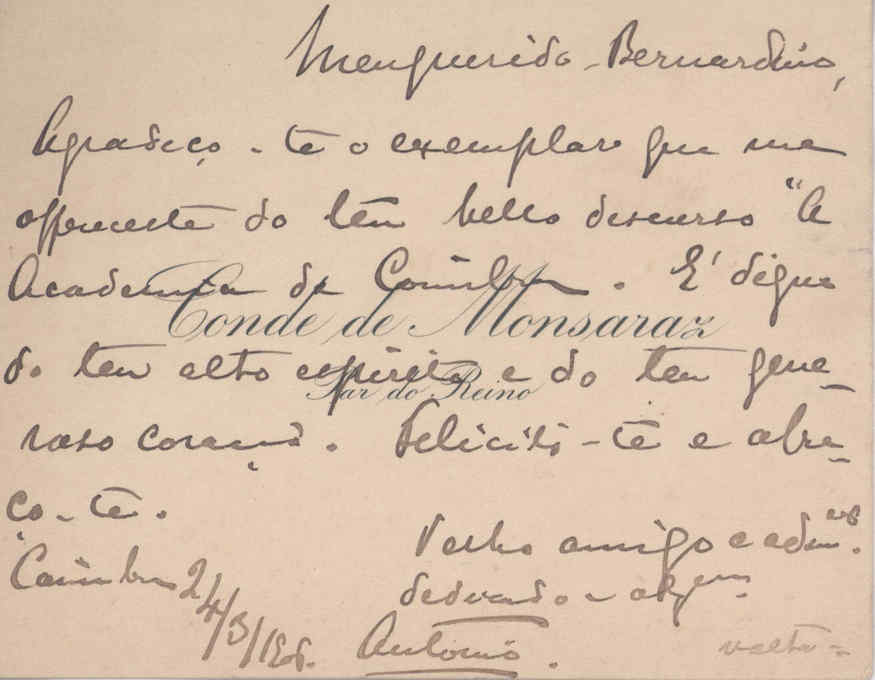 Meu querido Bernardino,
Agradeço-te o exemplar que me
offereceste do teu bello discurso "A
Academia de Coimbra. É digno
Conde de Monsaraz
do teu alto espirito e do teu gene-
Par do Reino
roso coração. Felicito-te e abra-
ço-te.
Velho amigo e adm.
Coimbra 24/3/
dedicado e
Antonio.
volta-